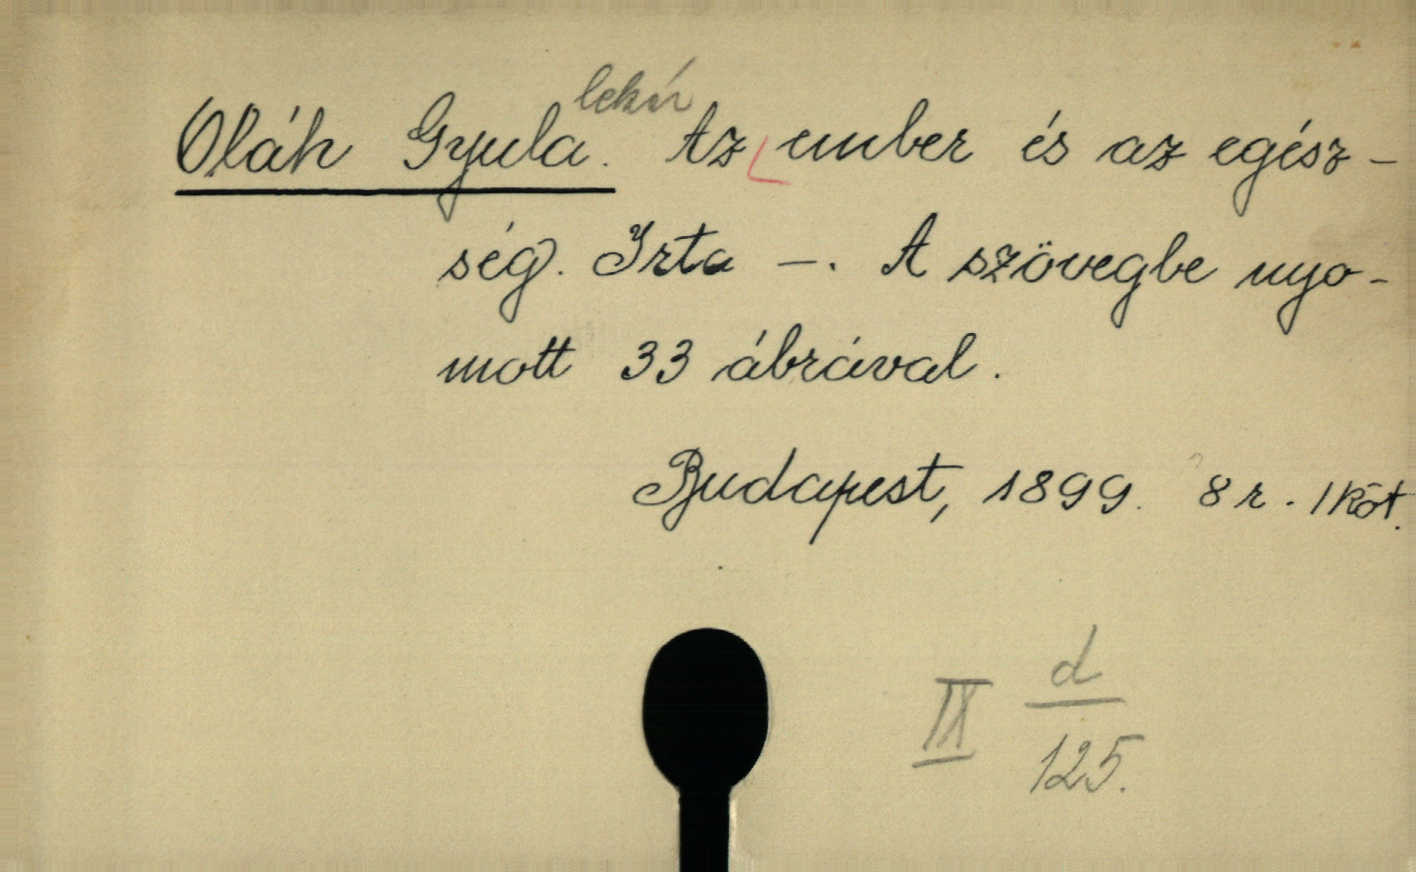 Oláh Gyula. Az ember és az egész-
ség. Irta —. A szövegbe nyo-
mott 33 ábrával.
Budapest, 1899. 8 r. 1 köt.
IX d
125.